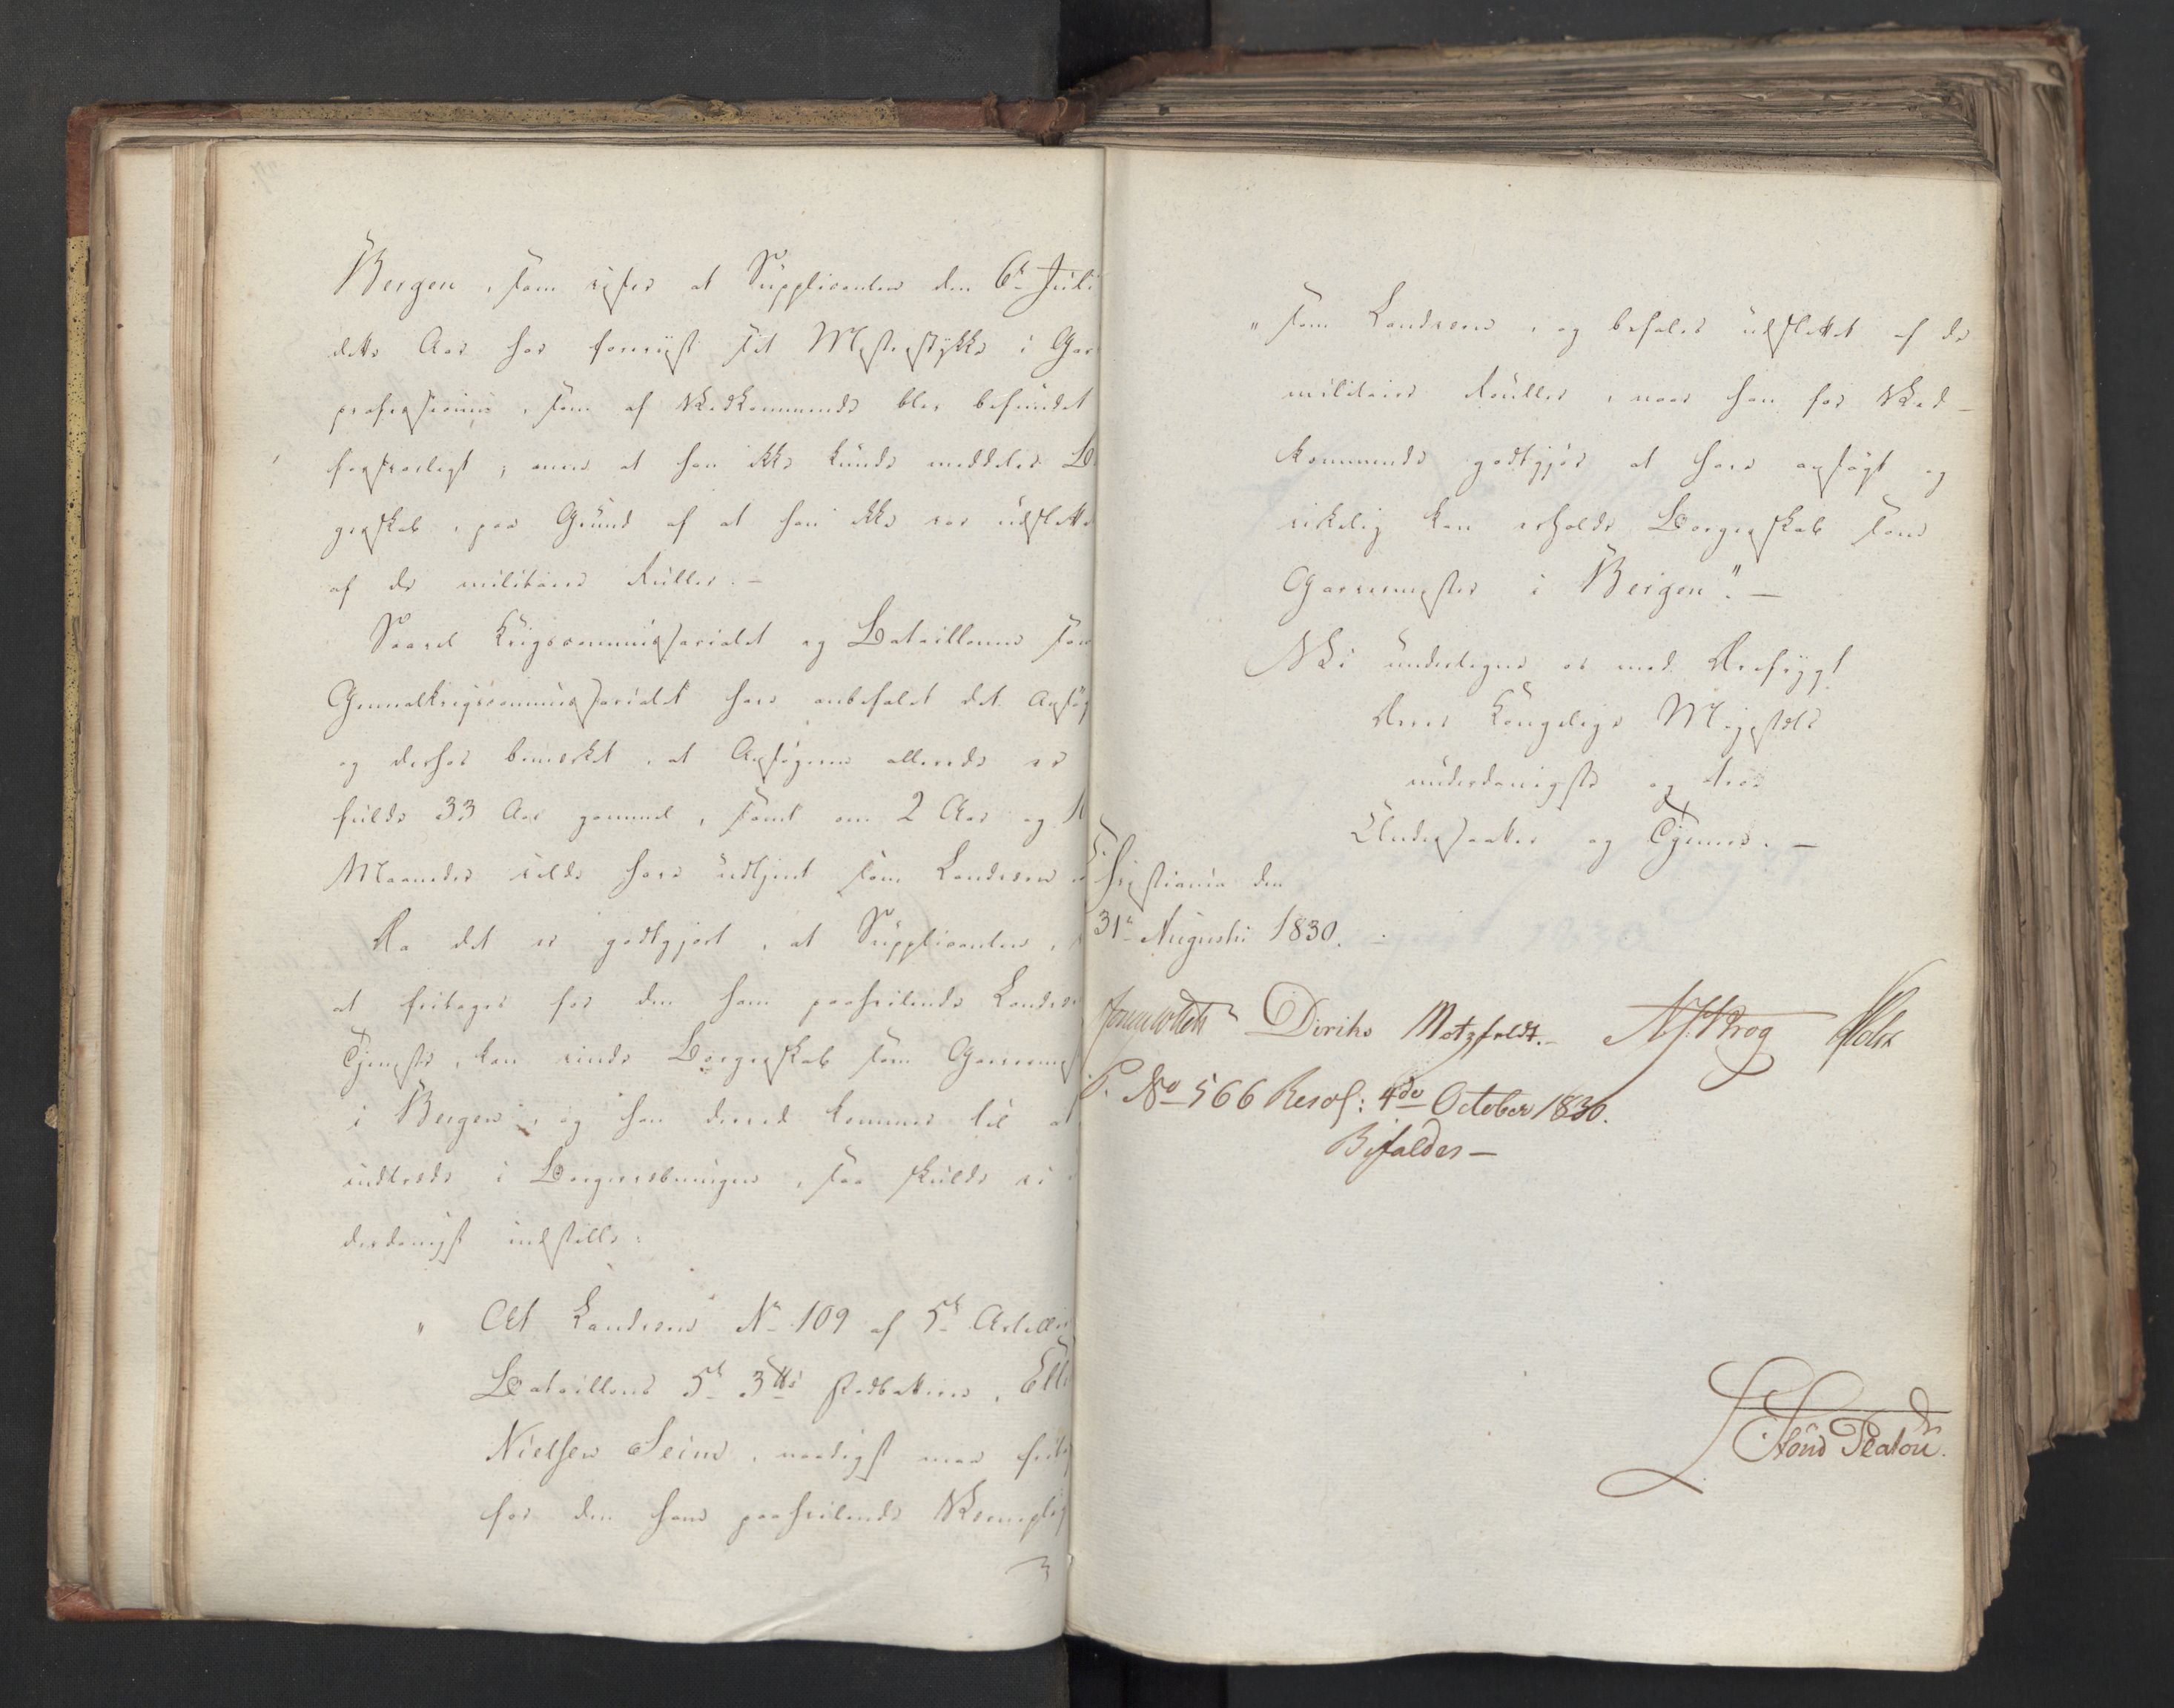 Bergen, som viser at Supplicanten den 6te Juli
dette Aar har foreviist sit Mesterstykke i Gar
professionen, som af Vedkommende blev befundet
forsvarligt; men at han ikke kunde meddeles Bor
gerskab, paa Grund af at han ikke var udslettet
af de militaire Ruller. —
Saavel Krigscommissariatet og Bataillonen som
Generalkrigscommissariatet have anbefalet det Ansøg
og derhos bemerket, at Ansøgeren allerede er
fulde 33 Aar gammel, samt om 2 Aar og
Maaneder vilde have udtjent som Landværn
Da det er godtgjort, at Supplicanten, 
at fritages for den ham paahvilende Landvær
Tjeneste, kan vinde Borgerskab som Garverme
i Bergen, og han derved kommer til at
indtræde i Borgervæbningen, saa skulde vi 
derdanigst indstille:
" At Landværn No 109 af 5te Artillerie
Bataillons 5te 3 ℔s Fodbatterie,
Nielsen Seim, naadigst maa frita
for den ham paahvilende Værneplig
" som Landværn, og befales udslettet af de
militaire Rouller, naar han for Ved-
kommende godtgjør at have ansøgt og
virkelig kan erholde Borgerskab som
Garvermester i Bergen". —
Vi undertegne os med Ærefrygt
Deres Kongelige Majestæts
underdanigste og troe
Undersaatter og Tjenere. —
Christiania den
31te Augusti 1830.
Diriks Motzfeldt. Krog Holst
P. No 566 Resol: 4de October 1830.
Bifaldes —
Stoud Platou.